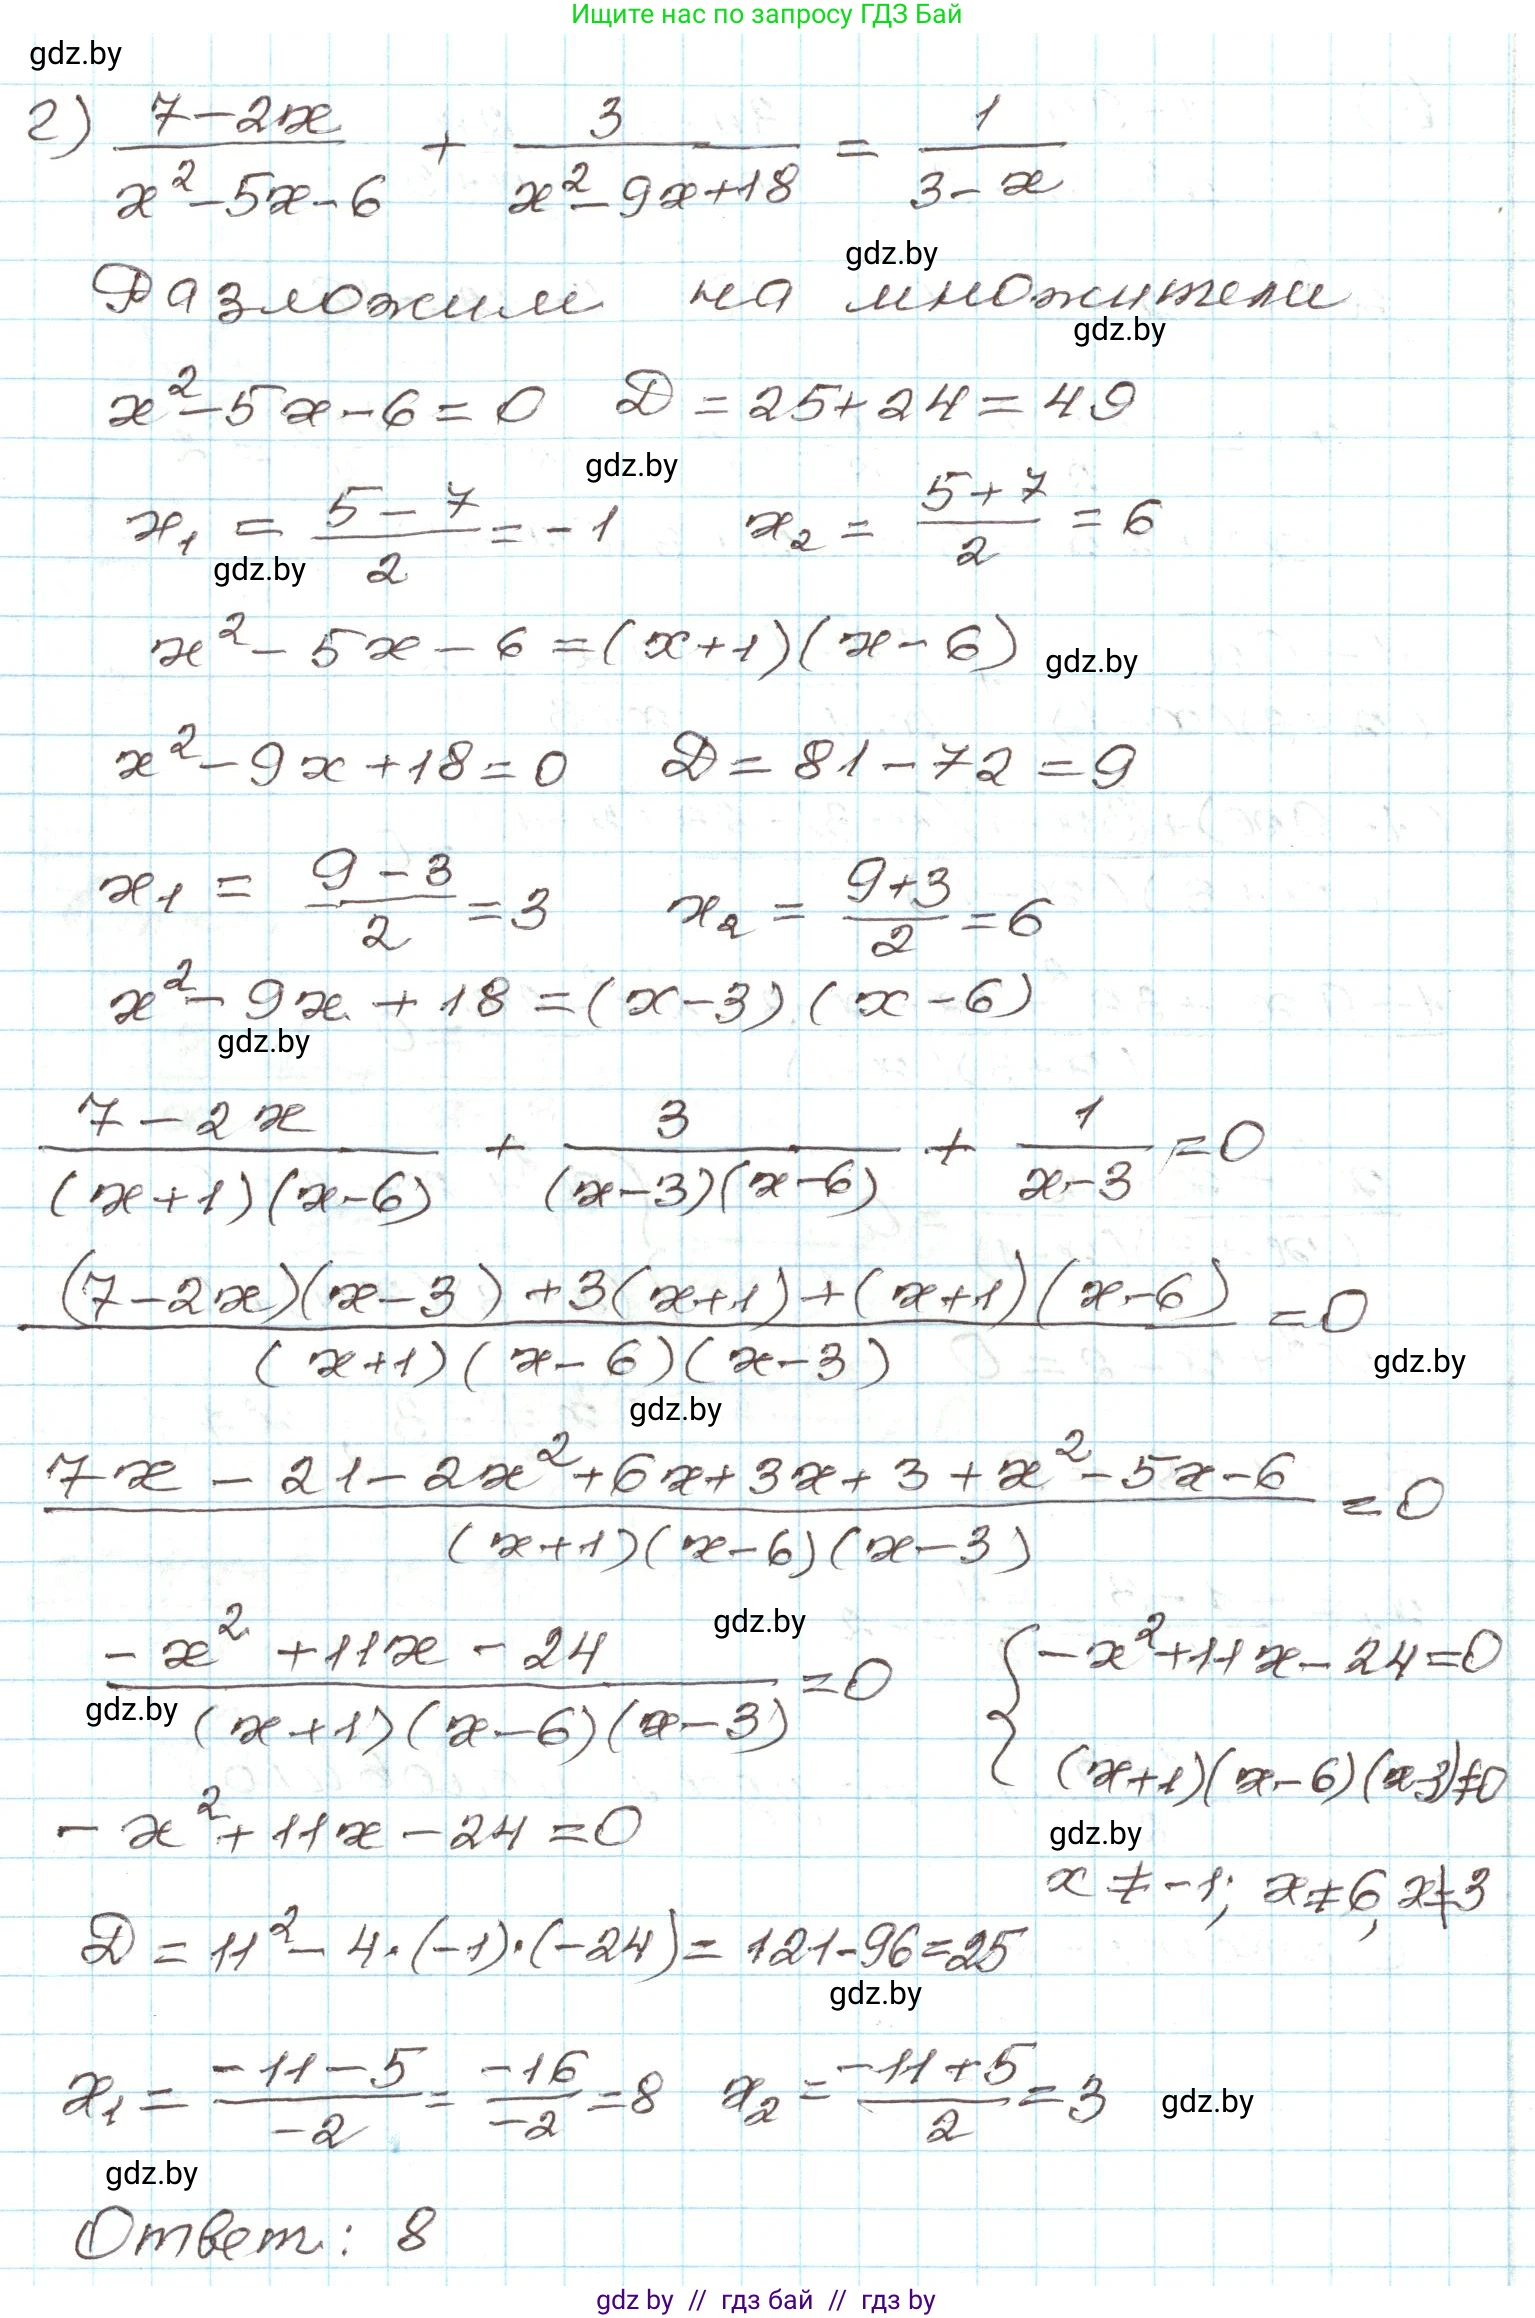 Ищите нас по запросу ГДЗ Бай
gdz.by
г) (7-2x)/(x²-5x-6) + 3/(x²-9x+18) = 1/(3-x)
gdz.by
Разложим на множители
gdz.by
x²-5x-6=0 D=25+24=49
gdz.by
x₁ = (5-7)/2 = -1 x₂ = (5+7)/2 = 6
gdz.by
x²-5x-6=(x+1)(x-6)
gdz.by
x²-9x+18=0 D=81-72=9
x₁ = (9-3)/2 = 3 x₂ = (9+3)/2 = 6
x²-9x+18=(x-3)(x-6)
gdz.by
(7-2x)/((x+1)(x-6)) + 3/((x-3)(x-6)) + 1/(x-3) = 0
((7-2x)(x-3)+3(x+1)+(x+1)(x-6))/((x+1)(x-6)(x-3)) = 0
gdz.by
gdz.by
(7x-21-2x²+6x+3x+3+x²-5x-6)/((x+1)(x-6)(x-3)) = 0
gdz.by
(-x²+11x-24)/((x+1)(x-6)(x-3)) = 0 { -x²+11x-24=0
gdz.by
(x+1)(x-6)(x-3)≠0
-x²+11x-24=0
gdz.by
x≠-1; x≠6, x≠3
D=11²-4·(-1)·(-24)=121-96=25
gdz.by
x₁ = (-11-5)/(-2) = (-16)/(-2) = 8 x₂ = (-11+5)/2 = 3
gdz.by
gdz.by
Ответ: 8
gdz by // гдз бай // гдз by